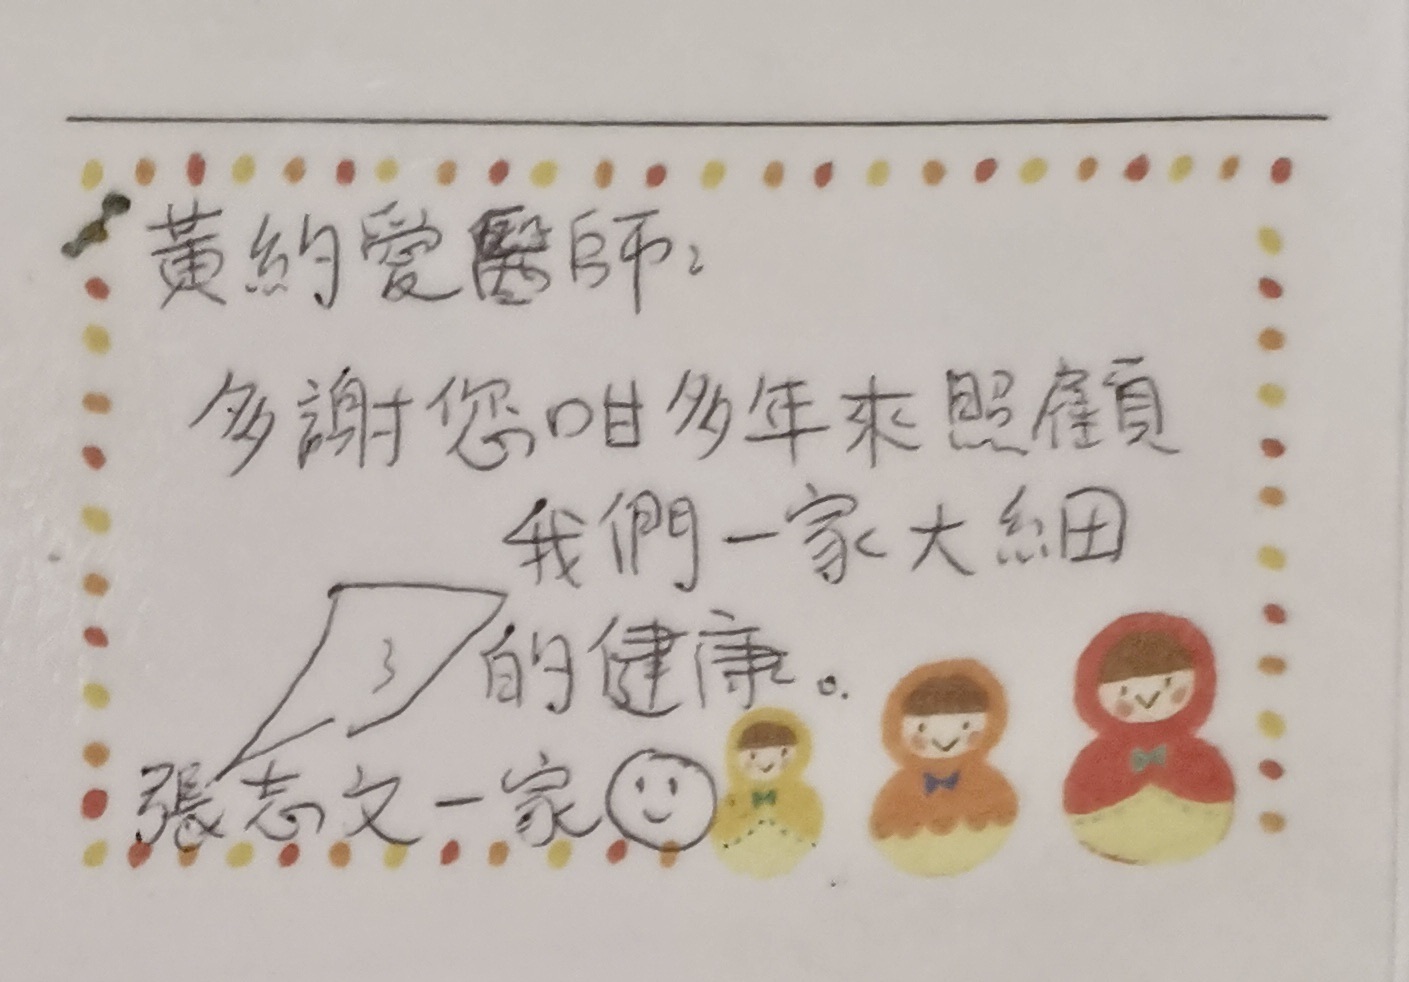 黃約愛醫師：
多謝您咁多年來照顧
我們一家大細
的健康。
張志文一家